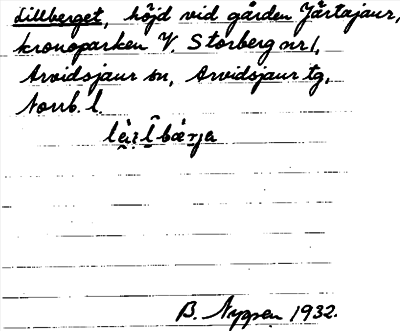 Lillberget, höjd vid gården Järtajaur,
kronoparken V. Storberg nr 1,
Arvidsjaur sn, Arvidsjaur tg,
Norrb. l.
B. Nygren 1932.